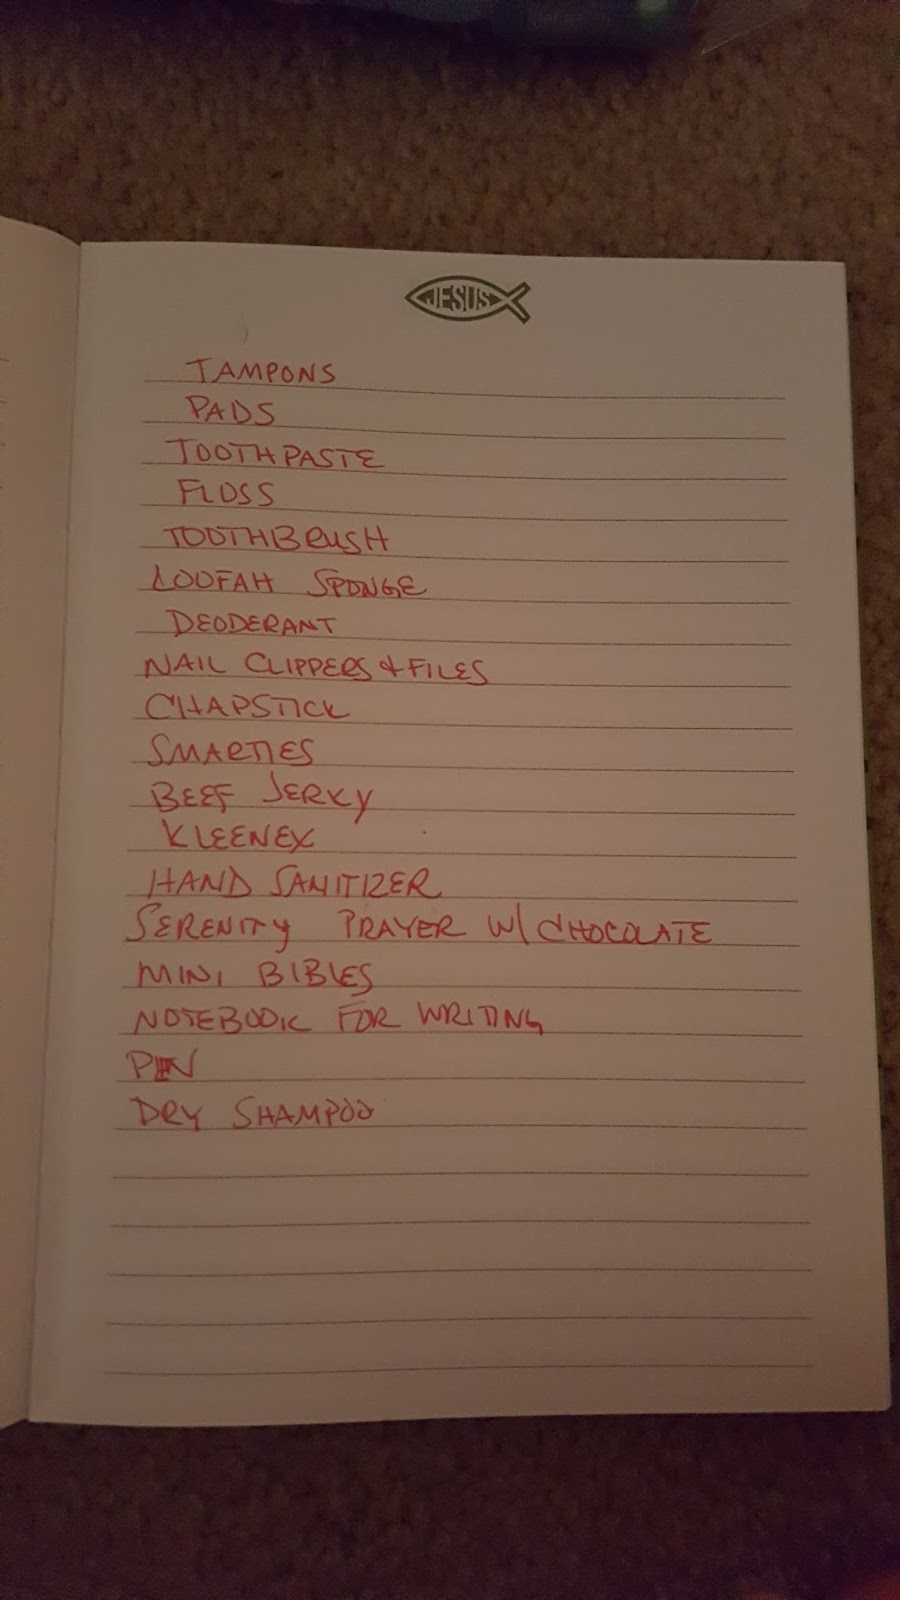 JESUS
TAMPONS
PADS
TOOTHPASTE
FLOSS
TOOTHBRUSH
LOOFAH SPONGE
DEODERANT
NAIL CLIPPERS & FILES
CHAPSTICK
SMARTIES
BEEF JERKY
KLEENEX
HAND SANITIZER
SERENITY PRAYER W/ CHOCOLATE
MINI BIBLES
NOTEBOOK FOR WRITING
PEN
DRY SHAMPOO